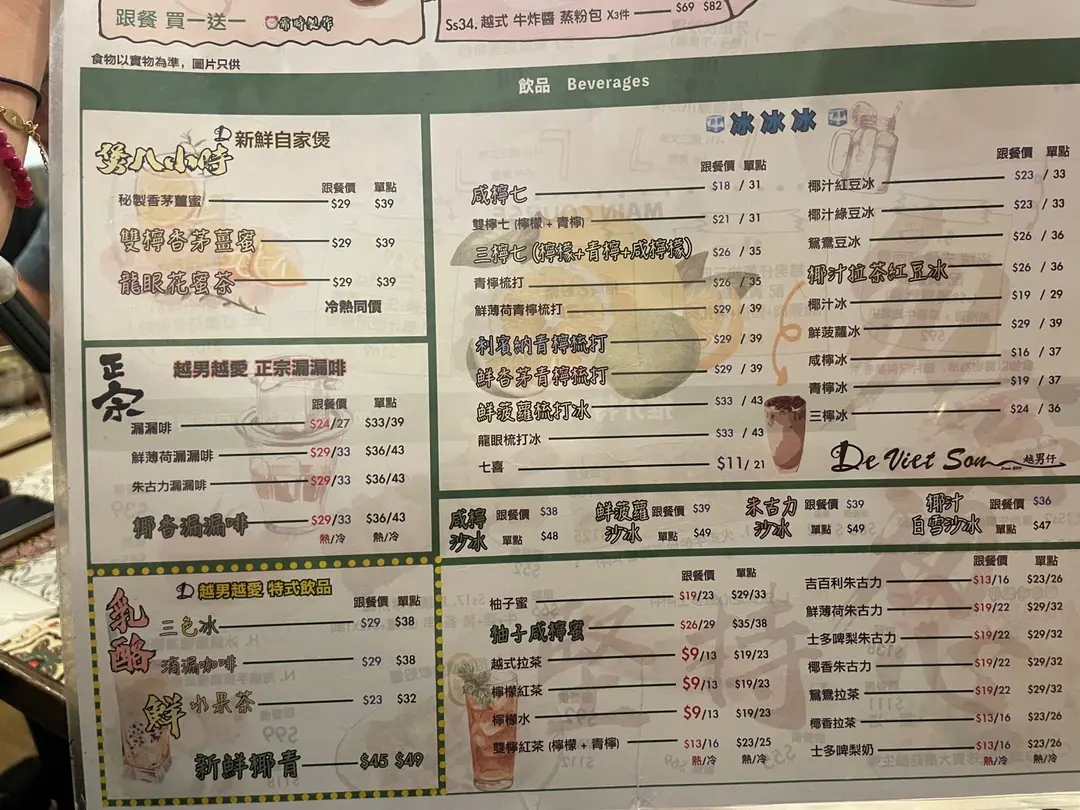 跟餐 買一送一 需時製作
Ss34. 越式 牛炸醬 蒸粉包 X3件 $69 $82
食物以實物為準，圖片只供
飲品 Beverages
新鮮自家煲
煲八小時
跟餐價 單點
秘製香茅薑蜜 $29 $39
雙檸香茅薑蜜 $29 $39
龍眼花蜜茶 $29 $39
冷熱同價
正宗
越男越愛 正宗滴滴啡
跟餐價 單點
滴滴啡 $24/27 $33/39
鮮薄荷滴滴啡 $29/33 $36/43
朱古力滴滴啡 $29/33 $36/43
椰香滴滴啡 $29/33 $36/43
熱/冷 熱/冷
越男越愛 特式飲品
跟餐價 單點
三色冰 $29 $38
乳酪 滴漏咖啡 $29 $38
鮮 水果茶 $23 $32
新鮮椰青 $45 $49
冰冰冰
跟餐價 單點
咸檸七 $18 / 31
雙檸七 (檸檬 + 青檸) $21 / 31
三檸七 (檸檬+青檸+咸檸檬) $26 / 35
青檸梳打 $26 / 35
鮮薄荷青檸梳打 $29 / 39
利賓納青檸梳打 $29 / 39
鮮香茅青檸梳打 $29 / 39
鮮菠蘿梳打冰 $33 / 43
龍眼梳打冰 $33 / 43
七喜 $11 / 21
跟餐價 單點
椰汁紅豆冰 $23 / 33
椰汁綠豆冰 $23 / 33
鴛鴦豆冰 $26 / 36
椰汁拉茶紅豆冰 $26 / 36
椰汁冰 $19 / 29
鮮菠蘿冰 $29 / 39
咸檸冰 $16 / 37
青檸冰 $19 / 37
三檸冰 $24 / 36
De Viet Son 越男仔
咸檸沙冰 跟餐價 $38 單點 $48
鮮菠蘿沙冰 跟餐價 $39 單點 $49
朱古力沙冰 跟餐價 $39 單點 $49
椰汁白雪沙冰 跟餐價 $36 單點 $47
跟餐價 單點
柚子蜜 $19/23 $29/33
柚子咸檸蜜 $26/29 $35/38
越式拉茶 $9/13 $19/23
檸檬紅茶 $9/13 $19/23
檸檬水 $9/13 $19/23
雙檸紅茶 (檸檬 + 青檸) $13/16 $23/25
熱/冷 熱/冷
跟餐價 單點
吉百利朱古力 $13/16 $23/26
鮮薄荷朱古力 $19/22 $29/32
士多啤梨朱古力 $19/22 $29/32
椰香朱古力 $19/22 $29/32
鴛鴦拉茶 $19/22 $29/32
椰香拉茶 $13/16 $23/26
士多啤梨奶 $13/16 $23/26
熱/冷 熱/冷